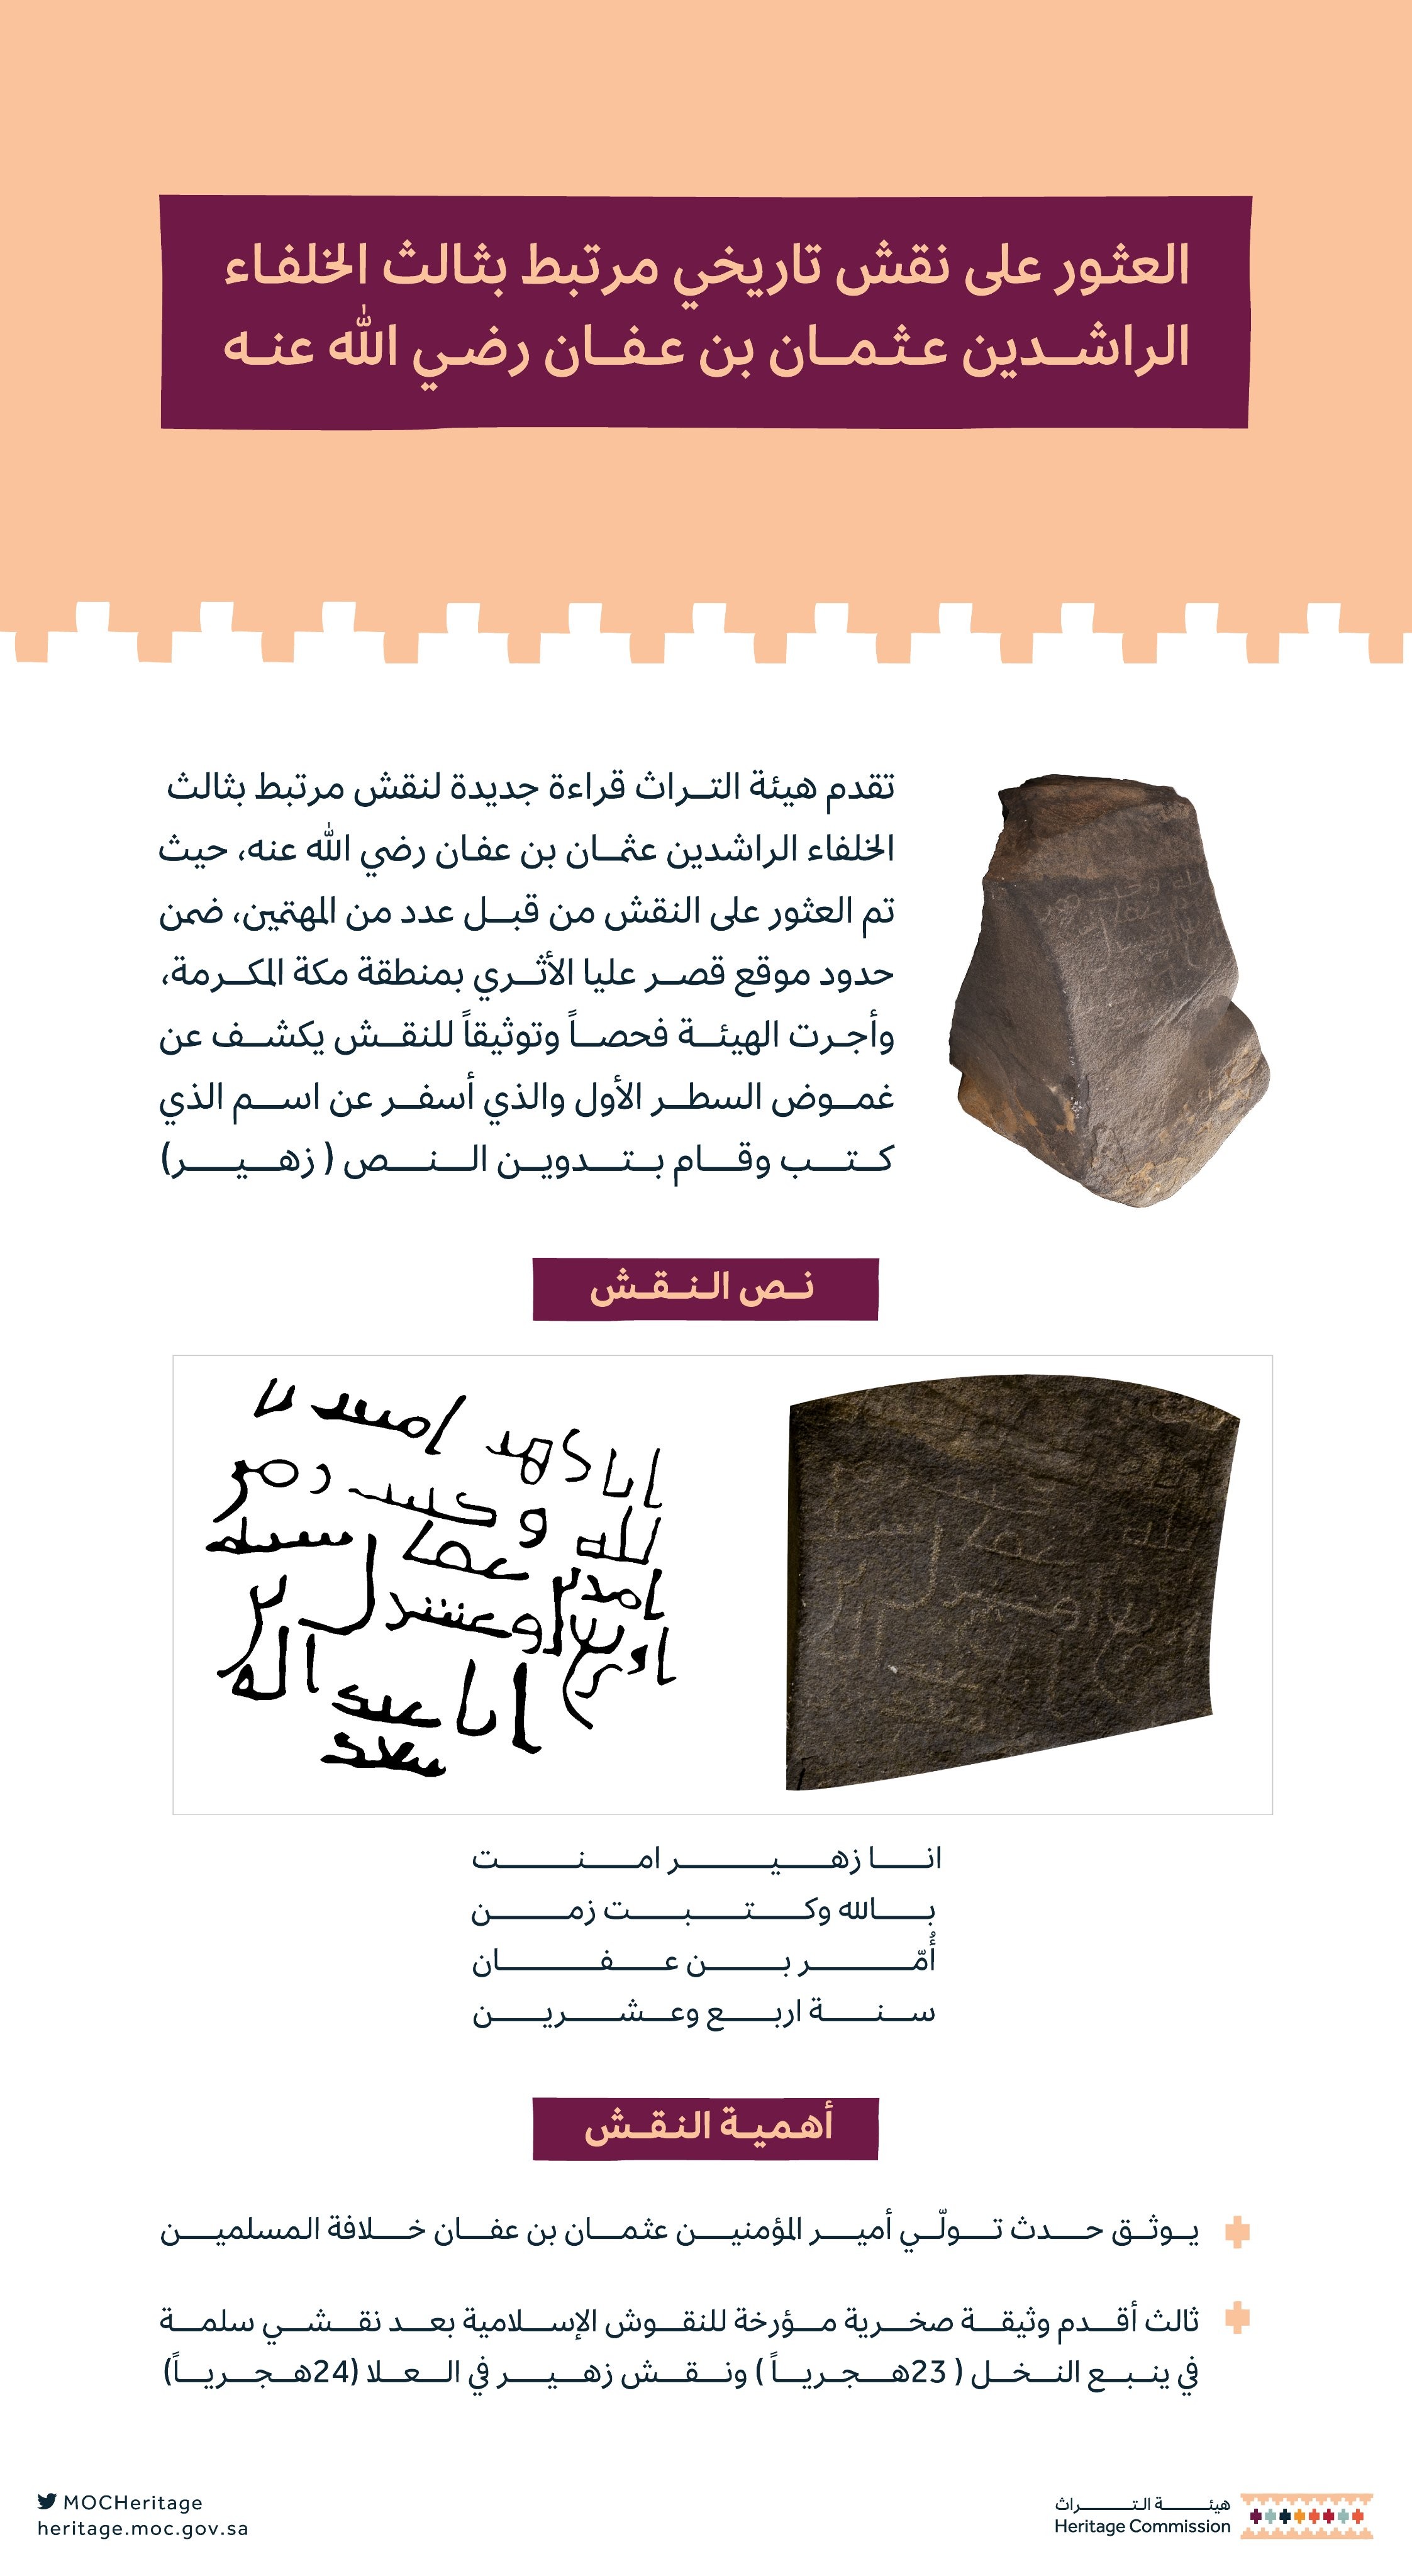 العثور على نقش تاريخي مرتبط بثالث الخلفاء
الراشدين عثمان بن عفان رضي الله عنه
تقدم هيئة التراث قراءة جديدة لنقش مرتبط بثالث
الخلفاء الراشدين عثمان بن عفان رضي الله عنه، حيث
تم العثور على النقش من قبل عدد من المهتمين، ضمن
حدود موقع قصر عليا الأثري بمنطقة مكة المكرمة،
وأجرت الهيئة فحصاً وتوثيقاً للنقش يكشف عن
غموض السطر الأول والذي أسفر عن اسم الذي
كتب وقام بتدوين النص ( زهير)
نص النقش
انا زهير امنت
بالله وكتبت زمن
أُمّر بن عفان
سنة اربع وعشرين
أهمية النقش
يوثق حدث تولّي أمير المؤمنين عثمان بن عفان خلافة المسلمين
ثالث أقدم وثيقة صخرية مؤرخة للنقوش الإسلامية بعد نقشي سلمة
في ينبع النخل ( 23هجرياً ) ونقش زهير في العلا (24هجرياً)
MOCHeritage
heritage.moc.gov.sa
هيئة التراث
Heritage Commission